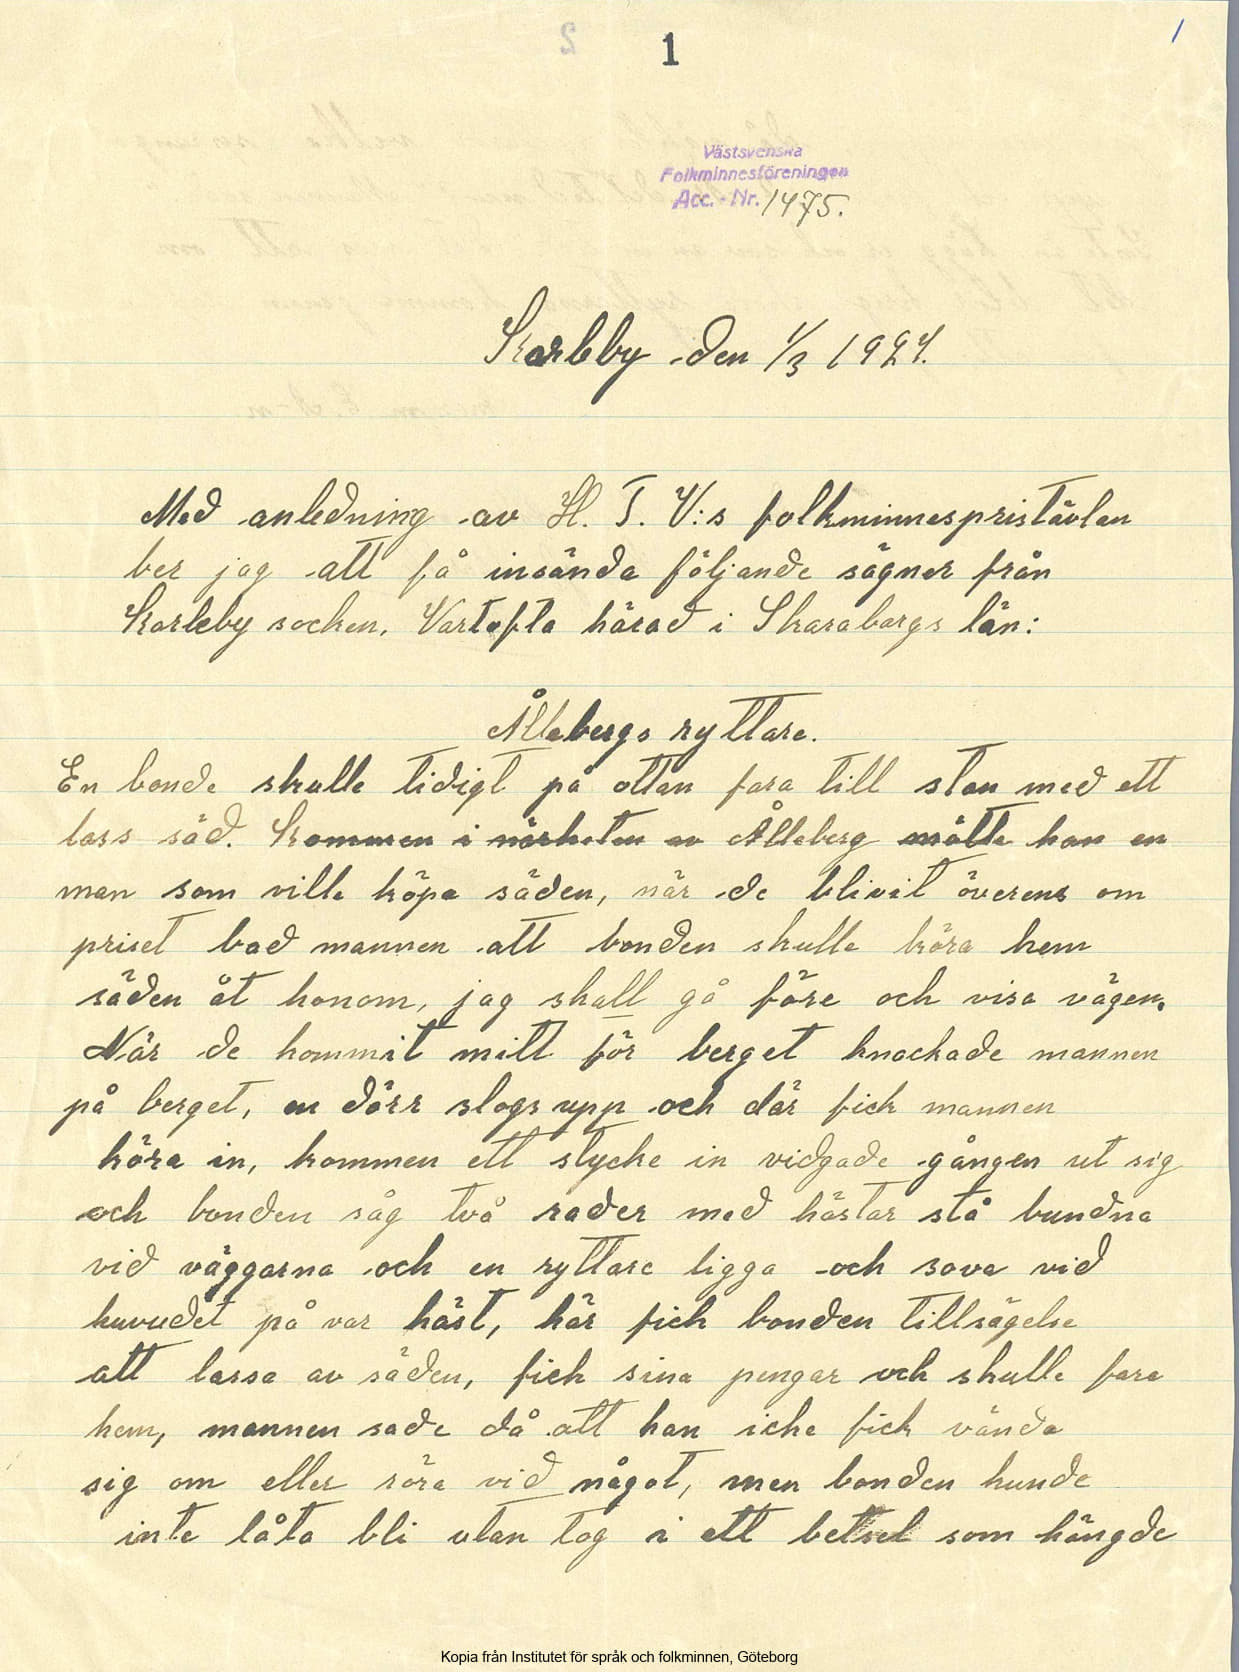 1
1
Västsvenska
Folkminnesföreningen
Acc. - Nr. 1475.
Karleby den 1/3 1927.
Med anledning av H. T. V:s folkminnespristävlan
ber jag att få insända följande sägner från
Karleby socken, Vartofta härad i Skaraborgs län:
Ållebergs ryttare.
En bonde skulle tidigt på ottan fara till stan med ett
lass säd. Kommen i närheten av Ålleberg mötte han en
man som ville köpa säden, när de blivit överens om
priset bad mannen att bonden skulle köra hem
säden åt honom, jag skall gå före och visa vägen.
När de kommit mitt för berget knackade mannen
på berget, en dörr slogs upp och där fick mannen
köra in, kommen ett stycke in vidgade gången ut sig
och bonden såg två rader med hästar stå bundna
vid väggarna och en ryttare ligga och sova vid
huvudet på var häst, här fick bonden tillsägelse
att lassa av säden, fick sina pengar och skulle fara
hem, mannen sade då att han icke fick vända
sig om eller röra vid något, men bonden kunde
inte låta bli utan tog i ett betsel som hängde
Kopia från Institutet för språk och folkminnen, Göteborg